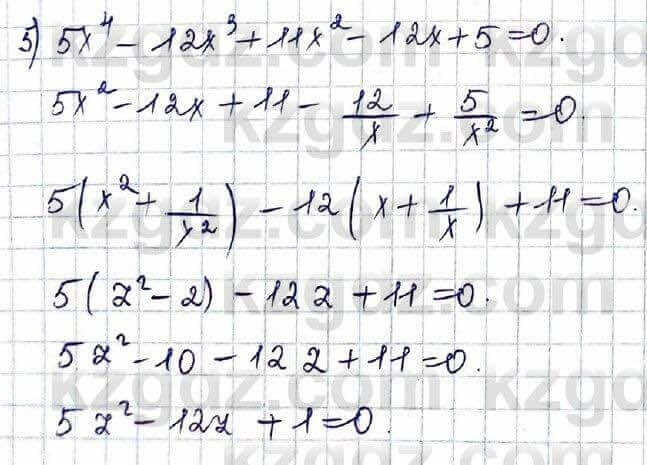 5) 5x⁴ - 12x³ + 11x² - 12x + 5 = 0.
5x² - 12x + 11 - 12/x + 5/x² = 0.
5(x² + 1/x²) - 12(x + 1/x) + 11 = 0.
5(z² - 2) - 12z + 11 = 0.
5z² - 10 - 12z + 11 = 0.
5z² - 12z + 1 = 0.
kzgdz.com